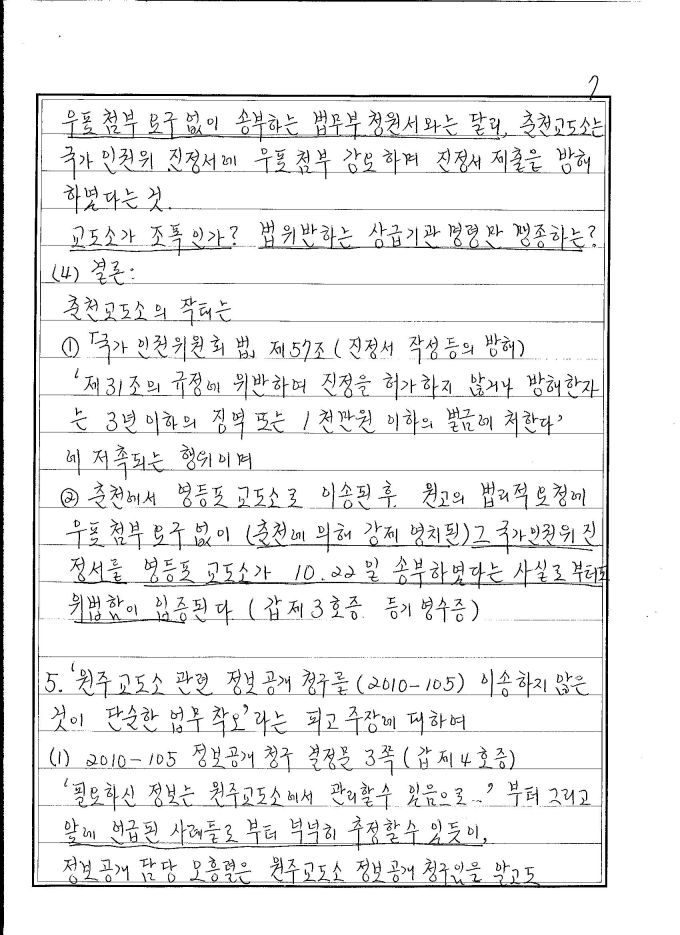 7
우표 첨부 요구 없이 송부하는 법무부 청원서와는 달리, 춘천교도소는
국가 인권위 진정서에 우표 첨부 강요하며 진정서 제출을 방해
하였다는 것.
교도소가 조폭인가? 법위반하는 상급기관 명령만 맹종하는?
(4) 결론:
춘천교도소의 작태는
① 「국가 인권위원회 법」 제57조 (진정서 작성등의 방해)
'제31조의 규정에 위반하여 진정을 허가하지 않거나 방해한자
는 3년 이하의 징역 또는 1천만원 이하의 벌금에 처한다'
에 저촉되는 행위이며
② 춘천에서 영등포 교도소로 이송된 후 원고의 법리적 요청에
우표첨부 요구 없이 (춘천에 의해 강제 영치된) 그 국가인권위 진
정서를 영등포 교도소가 10.22일 송부하였다는 사실로부터도
위법함이 입증된다. (갑 제3호증 등기 영수증)
5. '원주교도소 관련 정보공개 청구를 (2010-105) 이송하지 않은
것이 단순한 업무 착오'라는 피고 주장에 대하여
(1) 2010-105 정보공개 청구 결정문 3쪽 (갑 제4호증)
'필요하신 정보는 원주교도소에서 관리할 수 있음으로..' 부터 그리고
앞에 언급된 사례들로 부터 넉넉히 추정할 수 있듯이,
정보공개 담당 모흥렬은 원주교도소 정보공개 청구임을 알고도